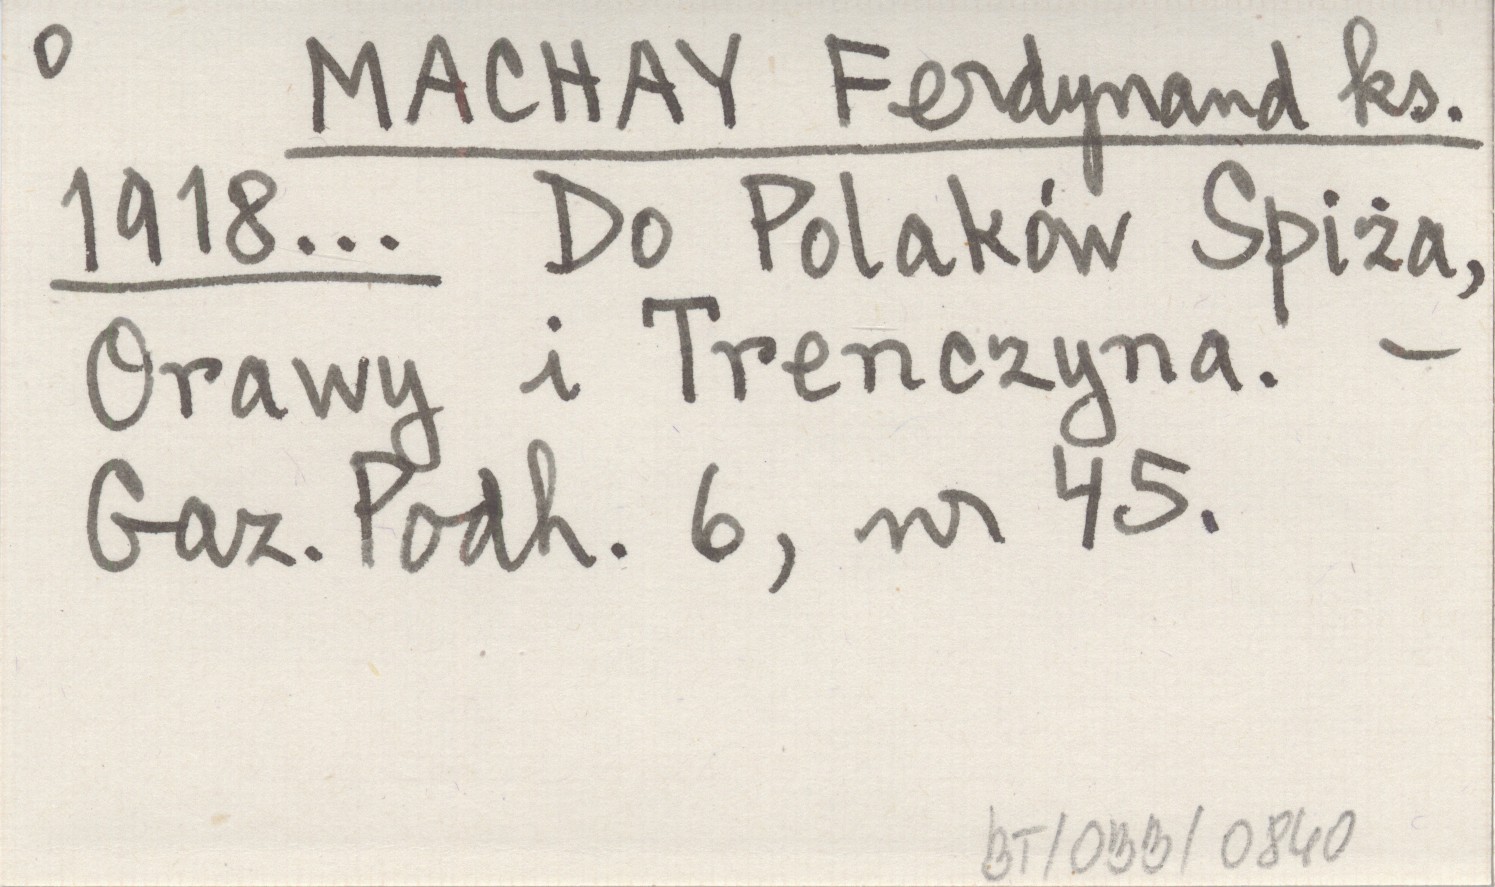 O MACHAY Ferdynand ks.
1918... Do Polaków Spiża,
Orawy i Trenczyna. –
Gaz. Podh. 6, nr 45.
BT/033/0840